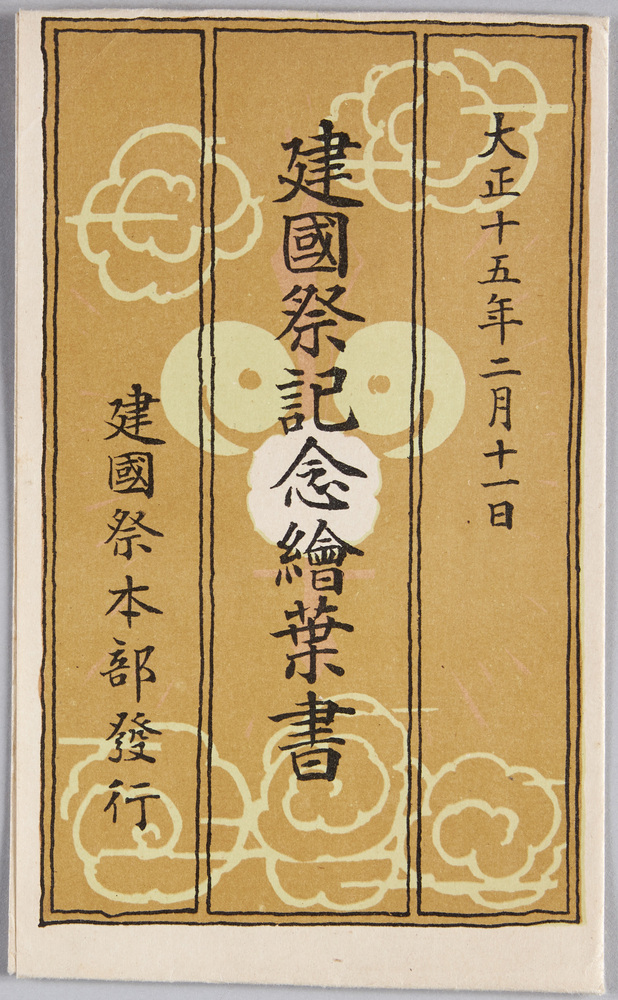 大正十五年二月十一日
建國祭記念繪葉書
建國祭本部發行